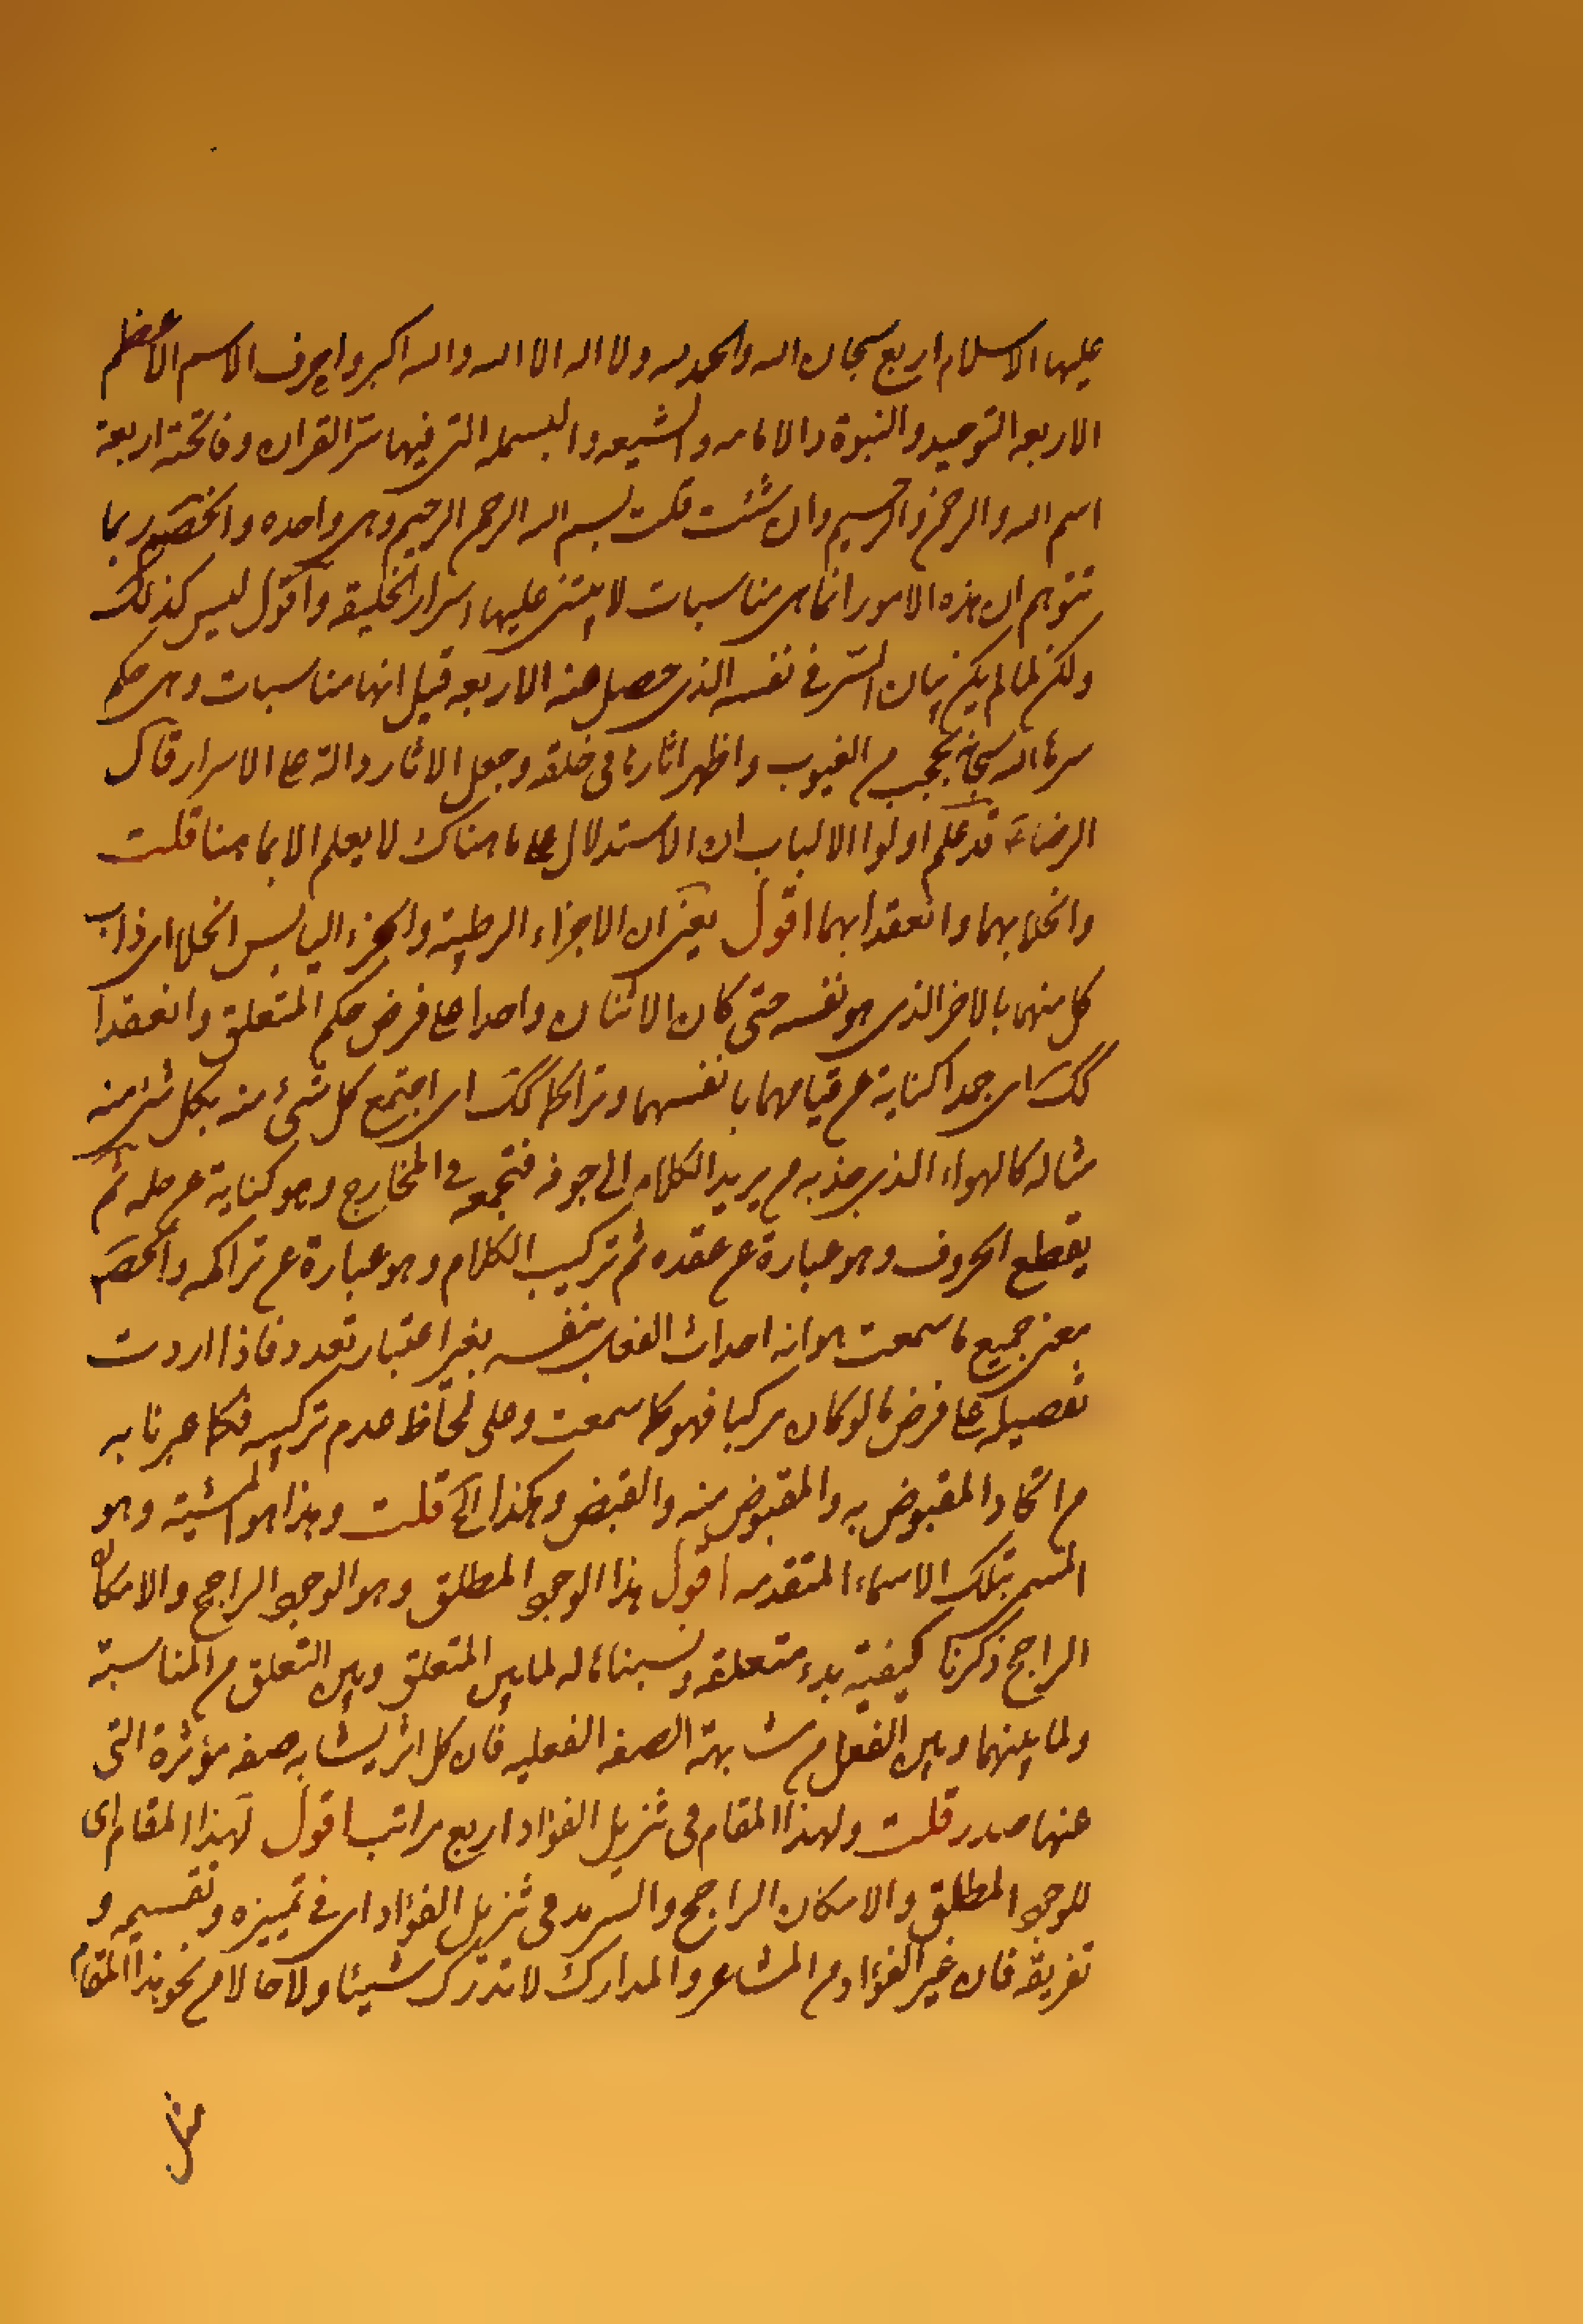 عليها الاسلام اربع سبحان الله والحمد لله ولا اله الا الله والله اكبر واحرف الاسم الاعظم
الاربعه التوحيد والنبوة والامامه والشيعه والبسمله التى فيها سرّ القران وفاتحته اربعة
اسم الله والرحمن والرحيم وان شئت قلت بسم الله الرحمن الرحيم وهى واحده والحصَر وربما
تتوهم ان هذه الامور انما هى مناسبات لا يبتنى عليها اسرار الخليقه واقول ليس كذلك
ولكن لما لم يكن بيان السّر فى نفسه الذى حصل منه الاربعه قيل انها مناسبات وهى حكم
سرها الله سبحانه بحجب من الغيوب واظهر اثارها فى خلقه وجعل الاثار دالة على الاسرار قال
الرضا ع قد علم اولوا الالباب ان الاستدلال على ما هناك لا يعلم الا بما هنا قلت
وانحلا بهما وانعقدا بهما اقول يعنى ان الاجزاء الرطبة والجزء اليابس انحلا اى ذاب
كل منهما بالاخر الذى هو نفسه حتى كان الاثنان واحدا على فرض حكم المتعلق وانعقدا
كك اى جمدا كناية عن قيامهما بانفسهما وتراكما كك اى اجتمع كل شىء منه بكل شىء منه
مثاله كالهواء الذى جذبه من يريد الكلام الى جوفه فتجمع فى المخارج وهو كناية عن حله ثم
يقطع الحروف وهو عبارة عن عقده ثم تركيب الكلام وهو عبارة عن تراكمه والحصَر
معنى جميع ما سمعت هو انه احداث الفعل بنفسه بغير اعتبار تعدد فاذا اردت
تفصيله على فرض ما لو كان مركبا فهو كما سمعت وعلى لحاظ عدم تركيبه فكما عبرنا به
من اتحاد المقبوض به والمقبوض منه والقبض وهكذا الخ قلت وهذا هو المشية وهو
المسمى بتلك الاسماء المتقدمه اقول هذا الوجود المطلق وهو الوجود الراجح والامكان
الراجح ذكرنا كيفية بدء متعلقه ونسبناها له لما بين المتعلق وبين التعلق من المناسبة
ولما بينهما وبين الفعل من مشابهة الصفه الفعليه فان كل اثر يشابه صفه مؤثرة التى
عنها صدر قلت ولهذا المقام فى تنزيل الفؤاد اربع مراتب اقول لهذا المقام اى
للوجود المطلق والامكان الراجح والسرمد فى تنزيل الفؤاد اى فى تمييزه وتقسيمه و
تفريقه فان غير الفؤاد من المشاعر والمدارك لا تدرك شيئا ولا حالا من نحو هذا المقام